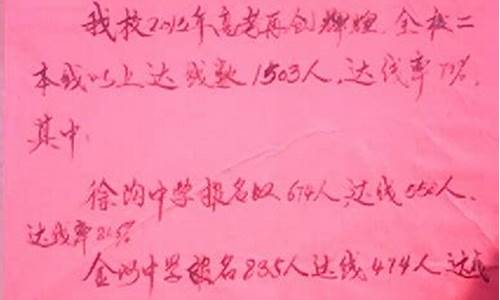 我校2012年高考再创辉煌 全校二
本线以上达线数1503人,达线率73%,
其中:
徐沟中学报名以674人,达线550人,
达线率81%
金河中学报名835人达线474人 达线